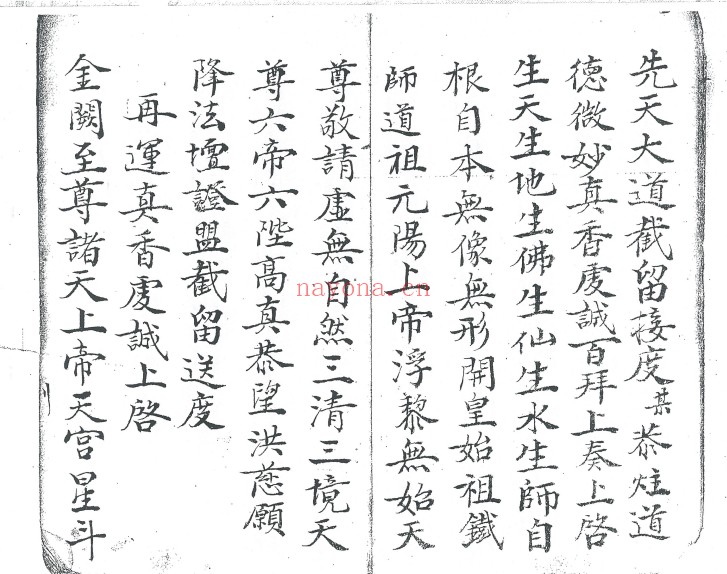 先天大道截留接度某恭炷道
德微妙真香虔誠百拜上奏上啓
生天生地生佛生仙生水生師自
根自本無像無形開皇始祖鐵
師道祖元陽上帝浮黎無始天
尊敬請虛無自然三清三境天
尊六帝六陛高真恭望洪慈願
降法壇證盟截留送度
再運真香虔誠上啓
金闕至尊諸天上帝天宮星斗
nayona.cn